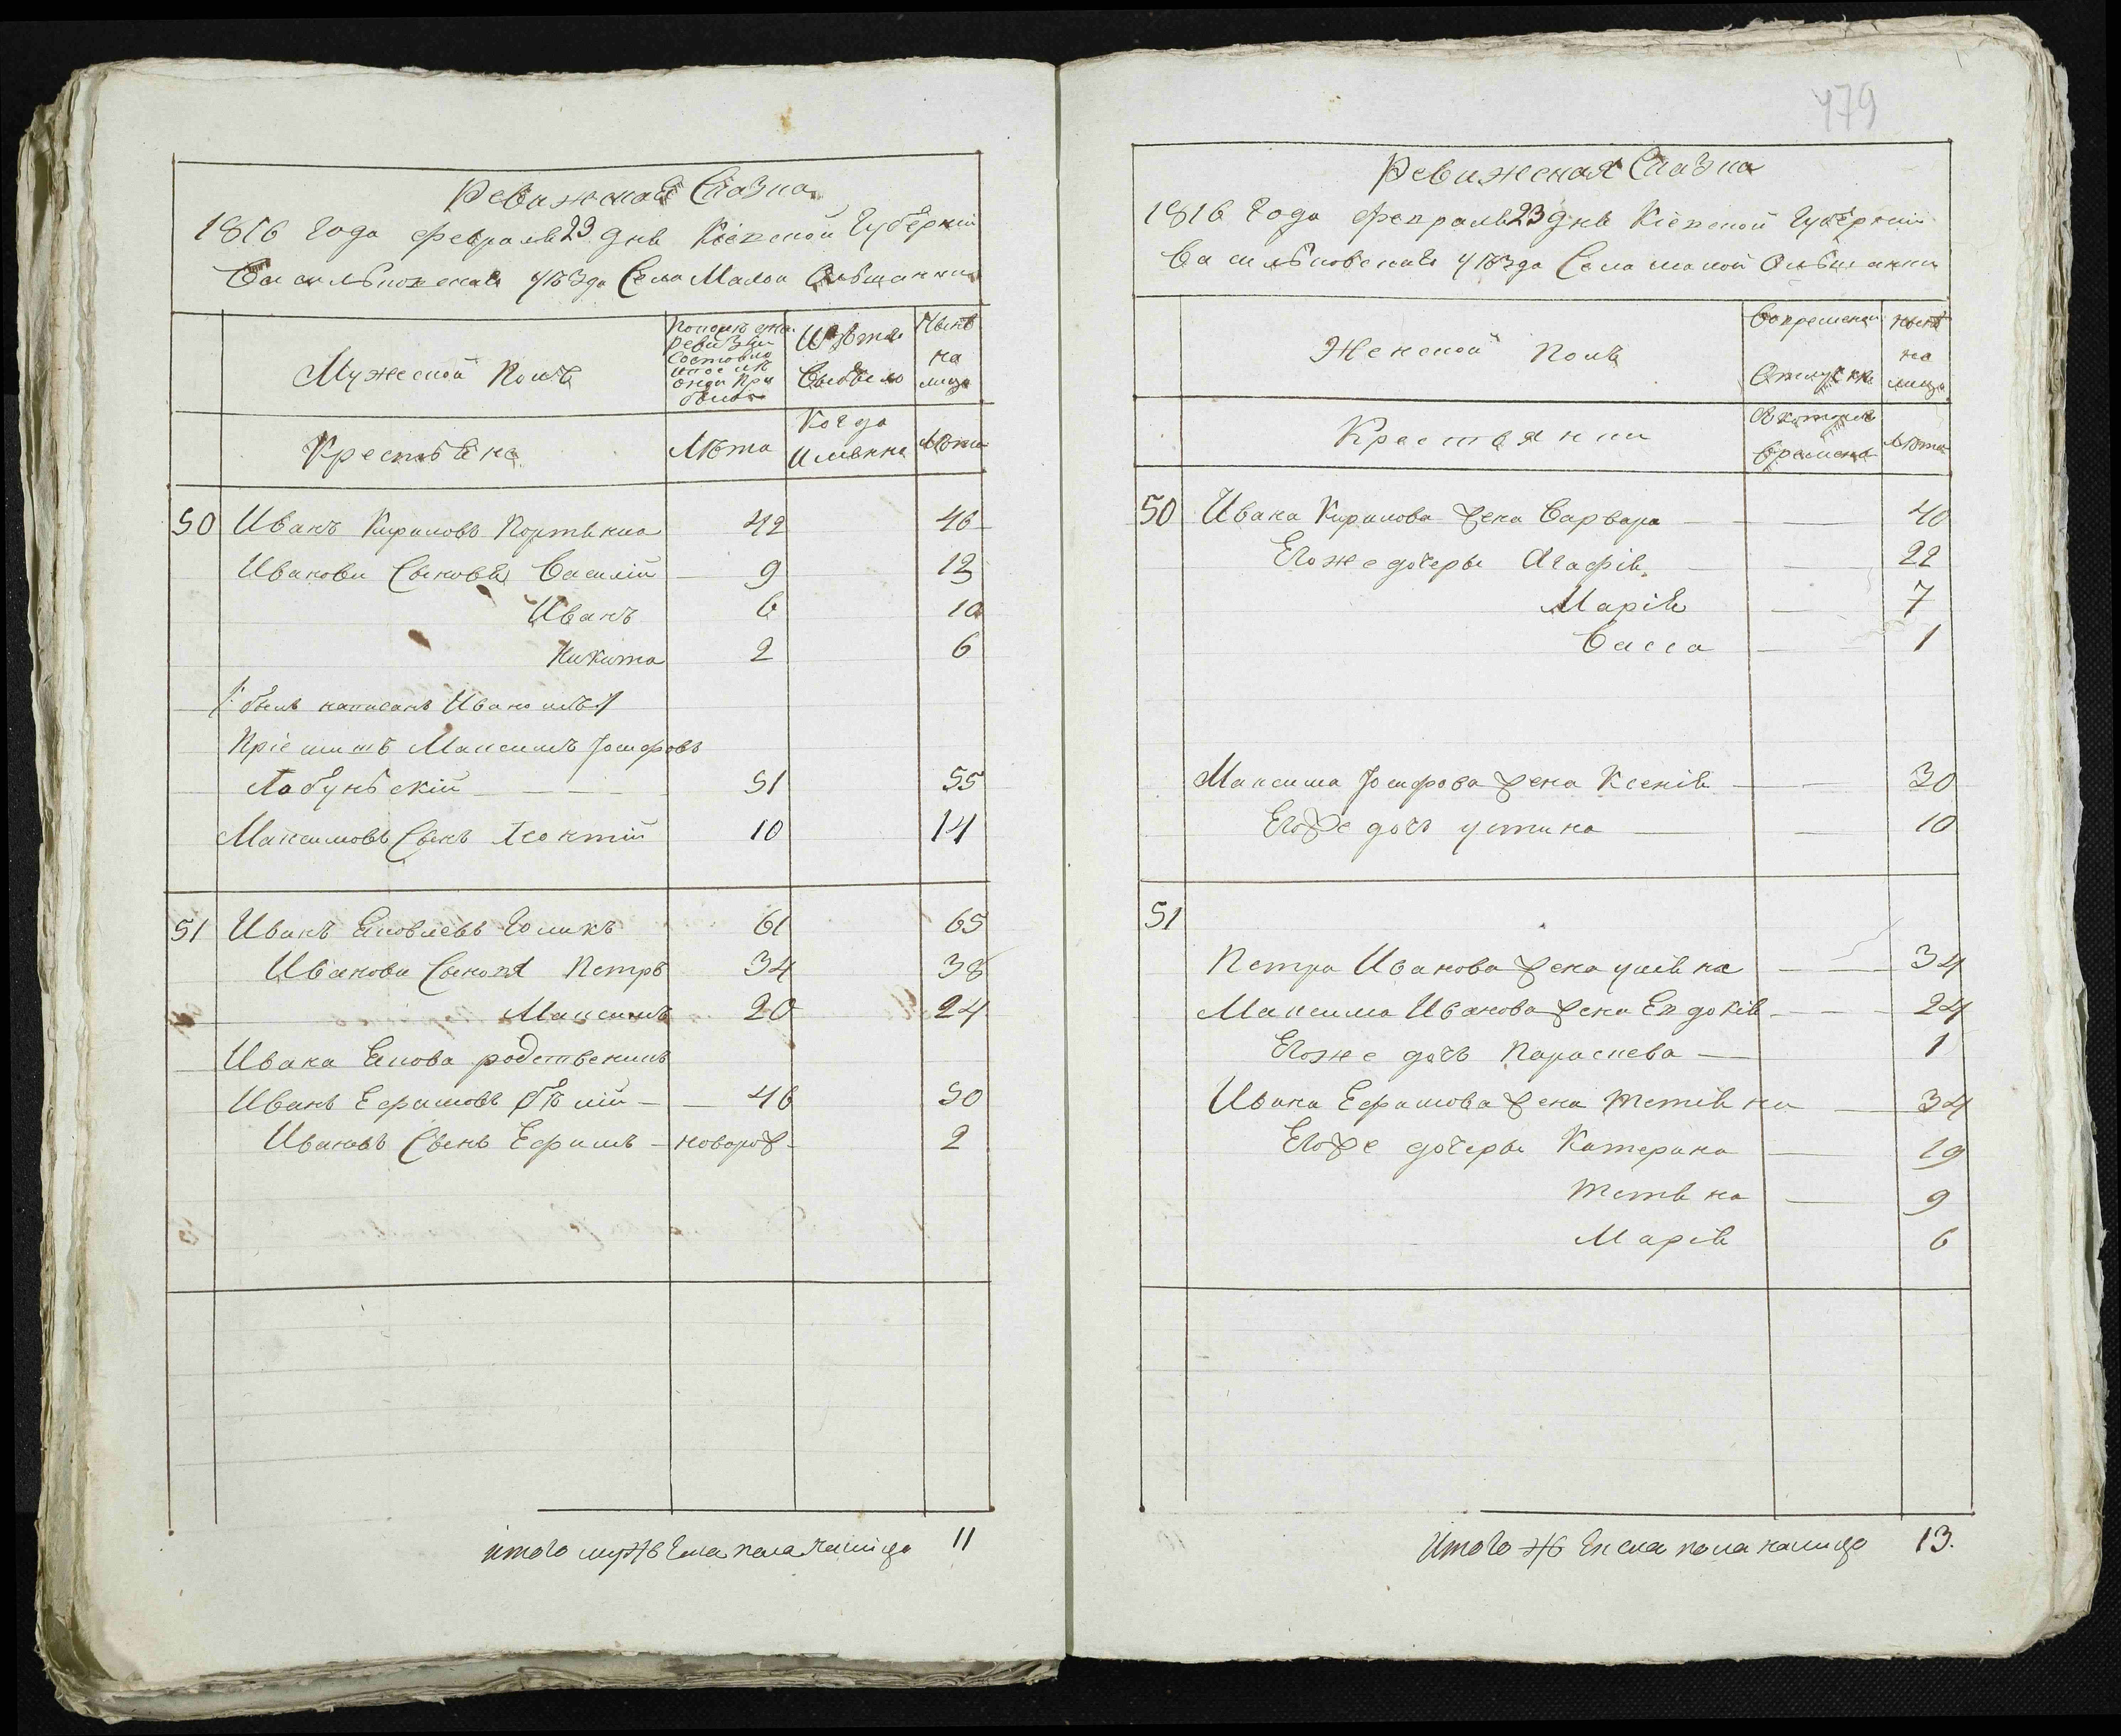 Ревижская Сказка
1816 года февраля 23 дня Кіевской Губерніи
Васильковскаго уѣзда Села Малой Ольшанки
Мужеской Полъ
По послѣдней
ревизіи
состояло
и послѣ
оной при
было
Изъ того
Выбыло
Нынѣ
на
лицо
Крестьяне
Лѣта
Когда
Именно
Лѣта
50 Иванъ Кириловъ Портянка 42 46
Иванови Сыновья Василій 9 13
Иванъ 6 10
Никита 2 6
/: былъ написанъ Иваномъ :/
Пріемышъ Максимъ Іосифовъ
Лабунскій 51 55
Максимовъ Сынъ Леонтій 10 14
51 Иванъ Яковлевъ Голикъ 61 65
Иванови Сыновя Петръ 34 38
Максимъ 20 24
Ивана Якова родственникъ
Иванъ Ефимовъ Бѣлій 46 50
Ивановъ Сынъ Ефимъ новорож 2
итого мужеска пола налицо 11
479
Ревижская Сказка
1816 года февраля 23 дня Кіевской Губерніи
Васильковскаго уѣзда Села малой Ольшанки
Женской полъ
Во временной
Отлучкѣ
Нынѣ
на
лицо
Крестьянки
Съ котораго
времени
Лѣта
50 Ивана Кирилова жена Варвара 40
Егоже дочеры Агафія 22
Марія 7
Васса 1
Максима Іосифова жена Ксенія 30
Егоже дочь устина 10
51
Петра Иванова жена уляна 34
Максима Иванова жена Евдокія 24
Егоже дочь Параскева 1
Ивана Ефимова жена Тетяна 34
Егоже дочеры Катерина 19
Тетяна 9
Марія 6
Итого женска пола налицо 13.